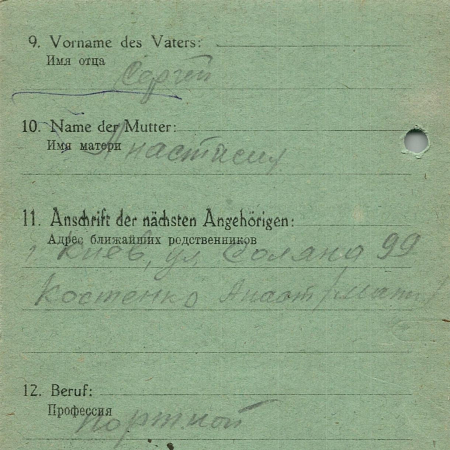 9. Vorname des Vaters:
Имя отца
Сергей
10. Name der Mutter:
Имя матери
Анастасия
11. Anschrift der nächsten Angehörigen:
Адрес ближайших родственников
г Киев, ул Соляна 99
Костенко Анаст/мать/
12. Beruf:
Профессия
портной